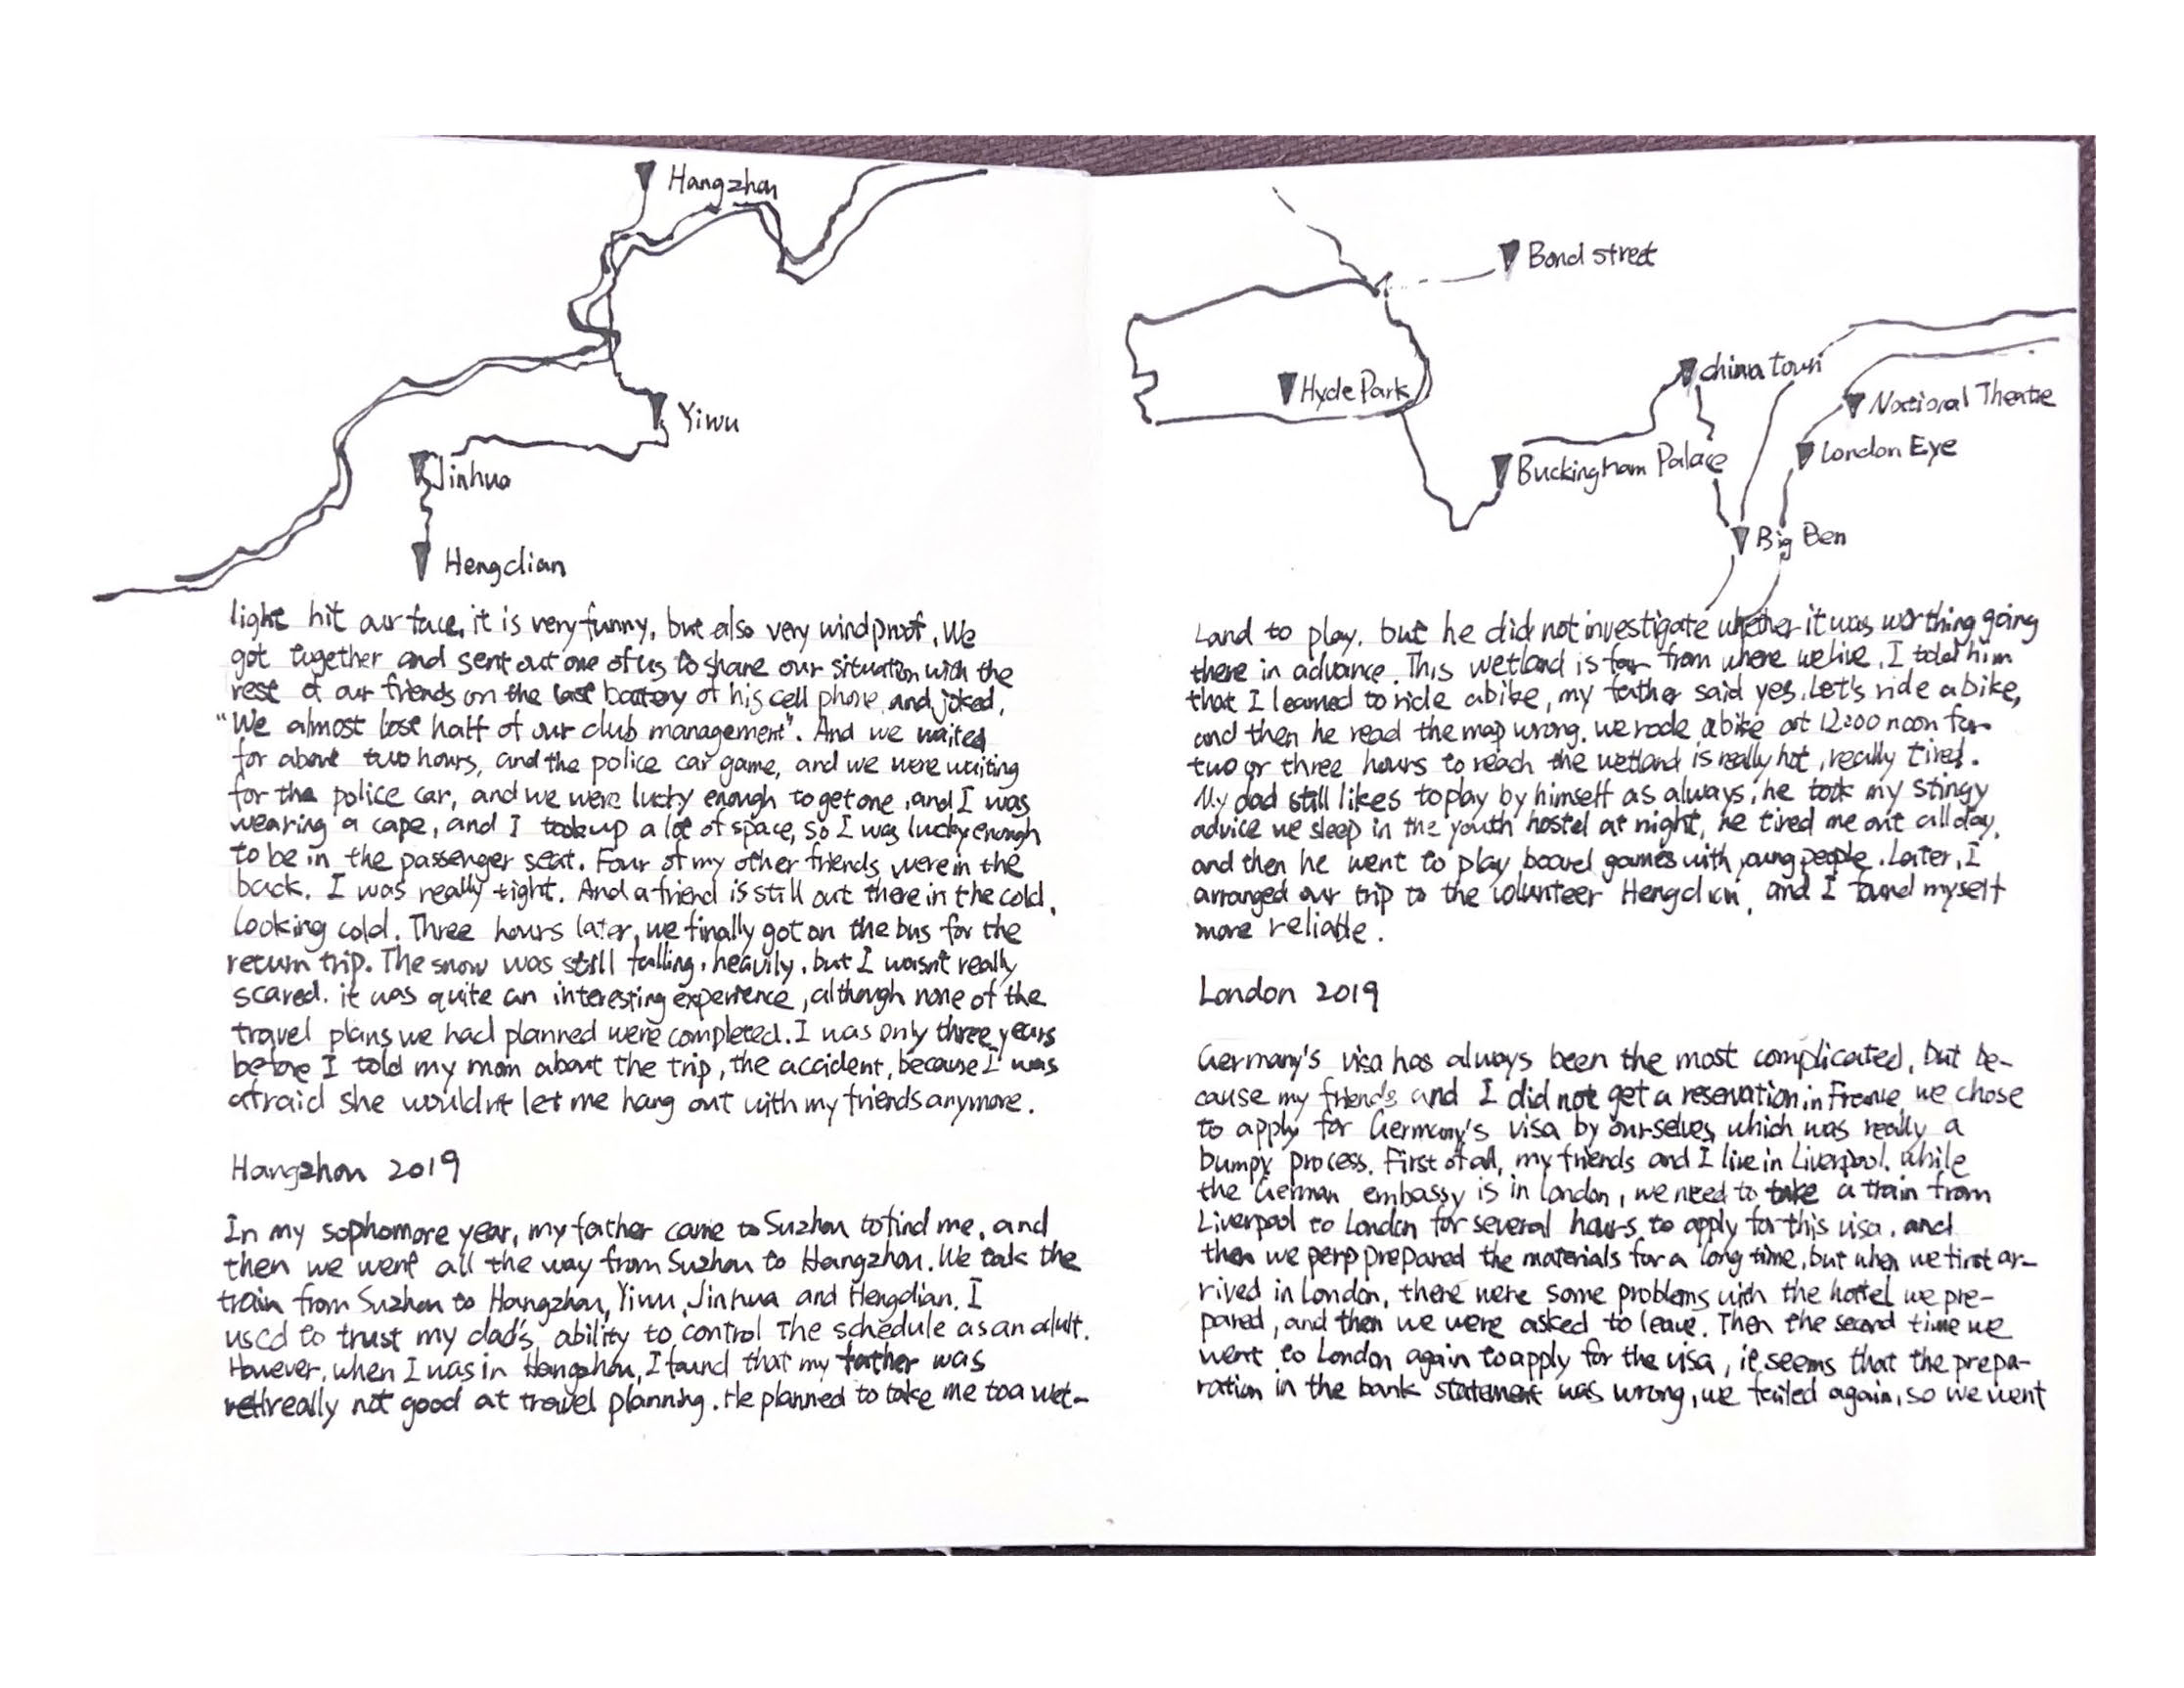 Hangzhou
Yiwu
Jinhua
Hengdian
light hit our face, it is very funny, but also very windproof. We
got together and sent out one of us to share our situation with the
rest of our friends on the last battery of his cell phone and joked,
"We almost lose half of our club management". And we waited
for about two hours, and the police car game, and we were waiting
for the police car, and we were lucky enough to get one, and I was
wearing a cape, and I took up a lot of space, so I was lucky enough
to be in the passenger seat. Four of my other friends were in the
back. I was really tight. And a friend is still out there in the cold,
looking cold. Three hours later, we finally got on the bus for the
return trip. The snow was still falling, heavily, but I wasn't really
scared. it was quite an interesting experience, although none of the
travel plans we had planned were completed. I was only three years
before I told my mom about the trip, the accident, because I was
afraid she wouldn't let me hang out with my friends anymore.
Hangzhou 2019
In my sophomore year, my father came to Suzhou to find me, and
then we went all the way from Suzhou to Hangzhou. We took the
train from Suzhou to Hangzhou, Yiwu, Jinhua and Hengdian. I
used to trust my dad's ability to control the schedule as an alult.
However, when I was in Hangzhou, I found that my father was
really not good at travel planning. He planned to take me to a wet-
Bond street
Hyde Park
china town
National Theatre
London Eye
Buckingham Palace
Big Ben
Land to play. but he did not investigate whether it was worthing going
there in advance. This wetland is far from where we live, I told him
that I learned to ride a bike, my father said yes, Let's ride a bike,
and then he read the map wrong. we rode a bike at 12:00 noon for
two or three hours to reach the wetland is really hot, really tired.
My dad still likes to play by himself as always, he took my stingy
advice we sleep in the youth hostel at night, he tired me out all day,
and then he went to play board games with young people. Later, I
arranged our trip to the volunteer Hengdian, and I found myself
more reliable.
London 2019
Germany's visa has always been the most complicated, but be-
cause my friends and I did not get a reservation in France, we chose
to apply for Germany's visa by ourselves, which was really a
bumpy process. First of all, my friends and I live in Liverpool, while
the German embassy is in london, we need to take a train from
Liverpool to London for several hours to apply for this visa, and
then we perp prepared the materials for a long time, but when we first ar-
rived in London, there were some problems with the hottel we pre-
pared, and then we were asked to leave. Then the second time we
went to London again to apply for the visa, it seems that the prepa-
ration in the bank statement was wrong, we failed again, so we went